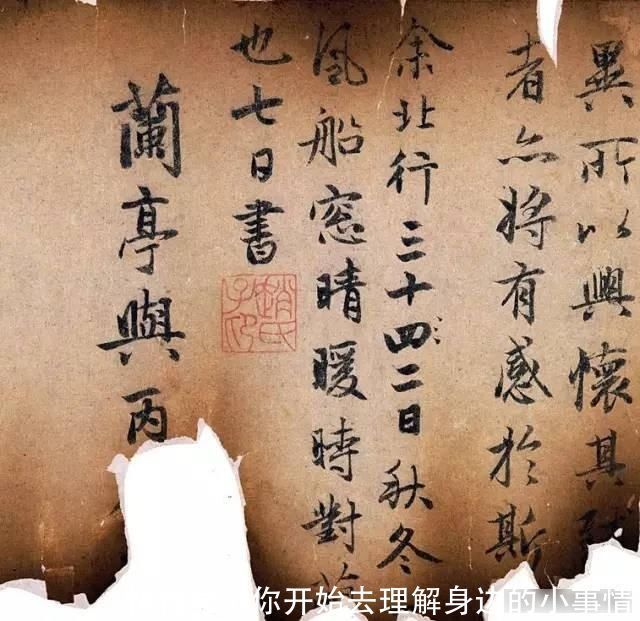 異所以興懷其
者亦将有感於斯
余北行三十四二日秋冬
風船窓晴暖時對
也七日書
趙氏子
蘭亭與丙
你开始去理解身边的小事情